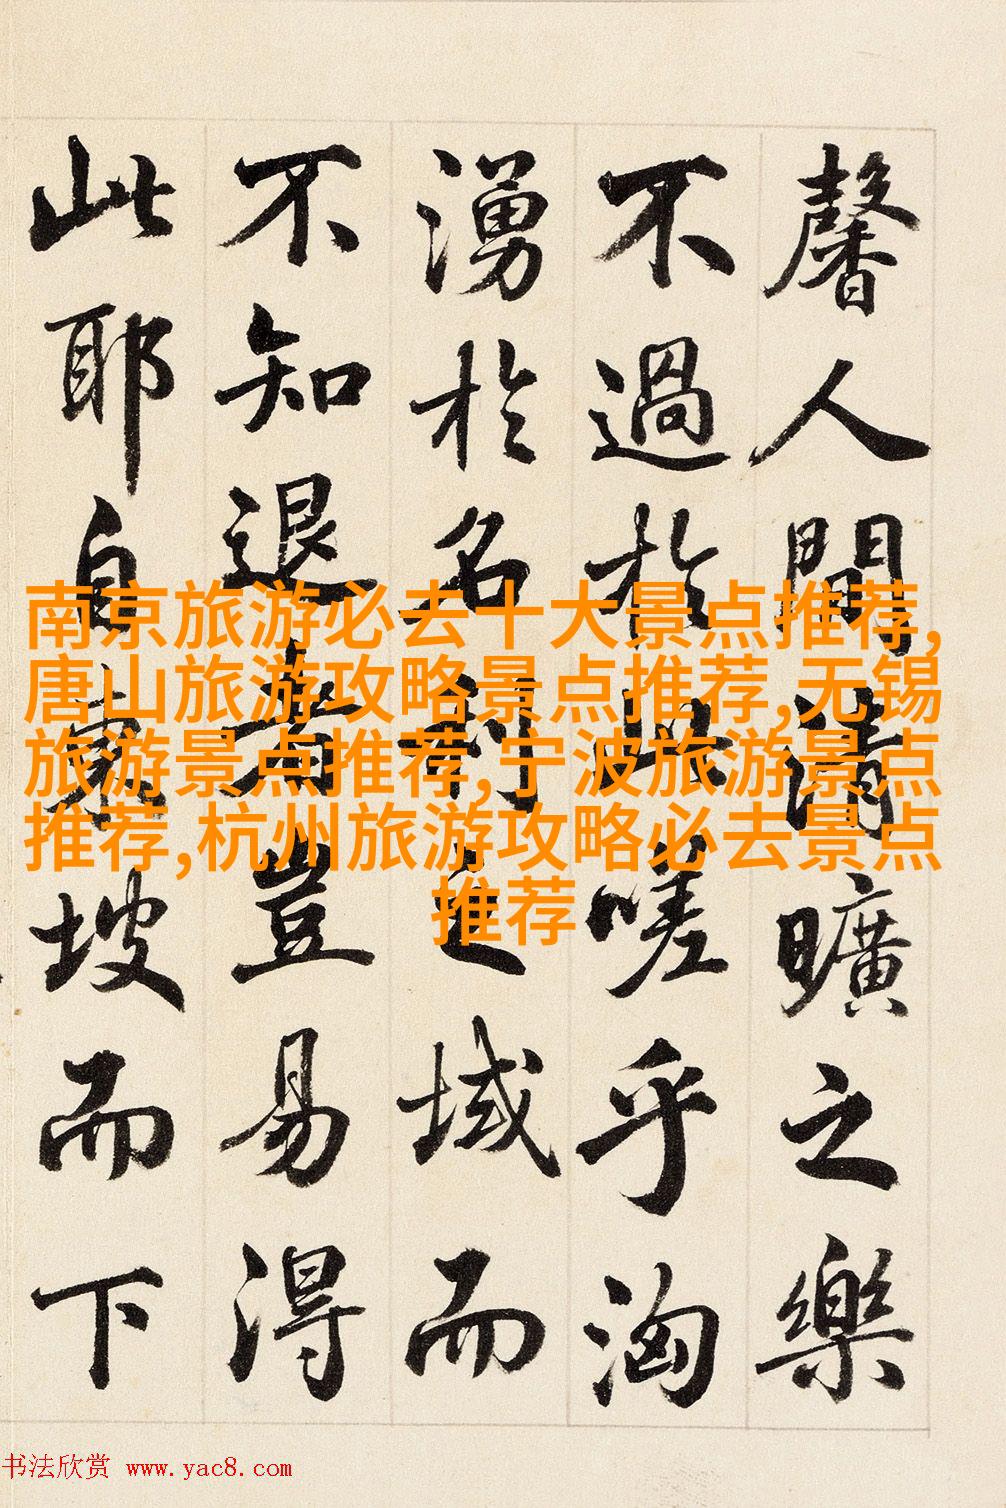 馨人間清曠之樂
不過於此嗟乎洶
湧於名利之域而
不知退者豈易得
此耶自東坡而下
南京旅游必去十大景点推荐,
唐山旅游攻略景点推荐,无锡
旅游景点推荐,宁波旅游景点
推荐,杭州旅游攻略必去景点
推荐
书法欣赏 www.yac8.com